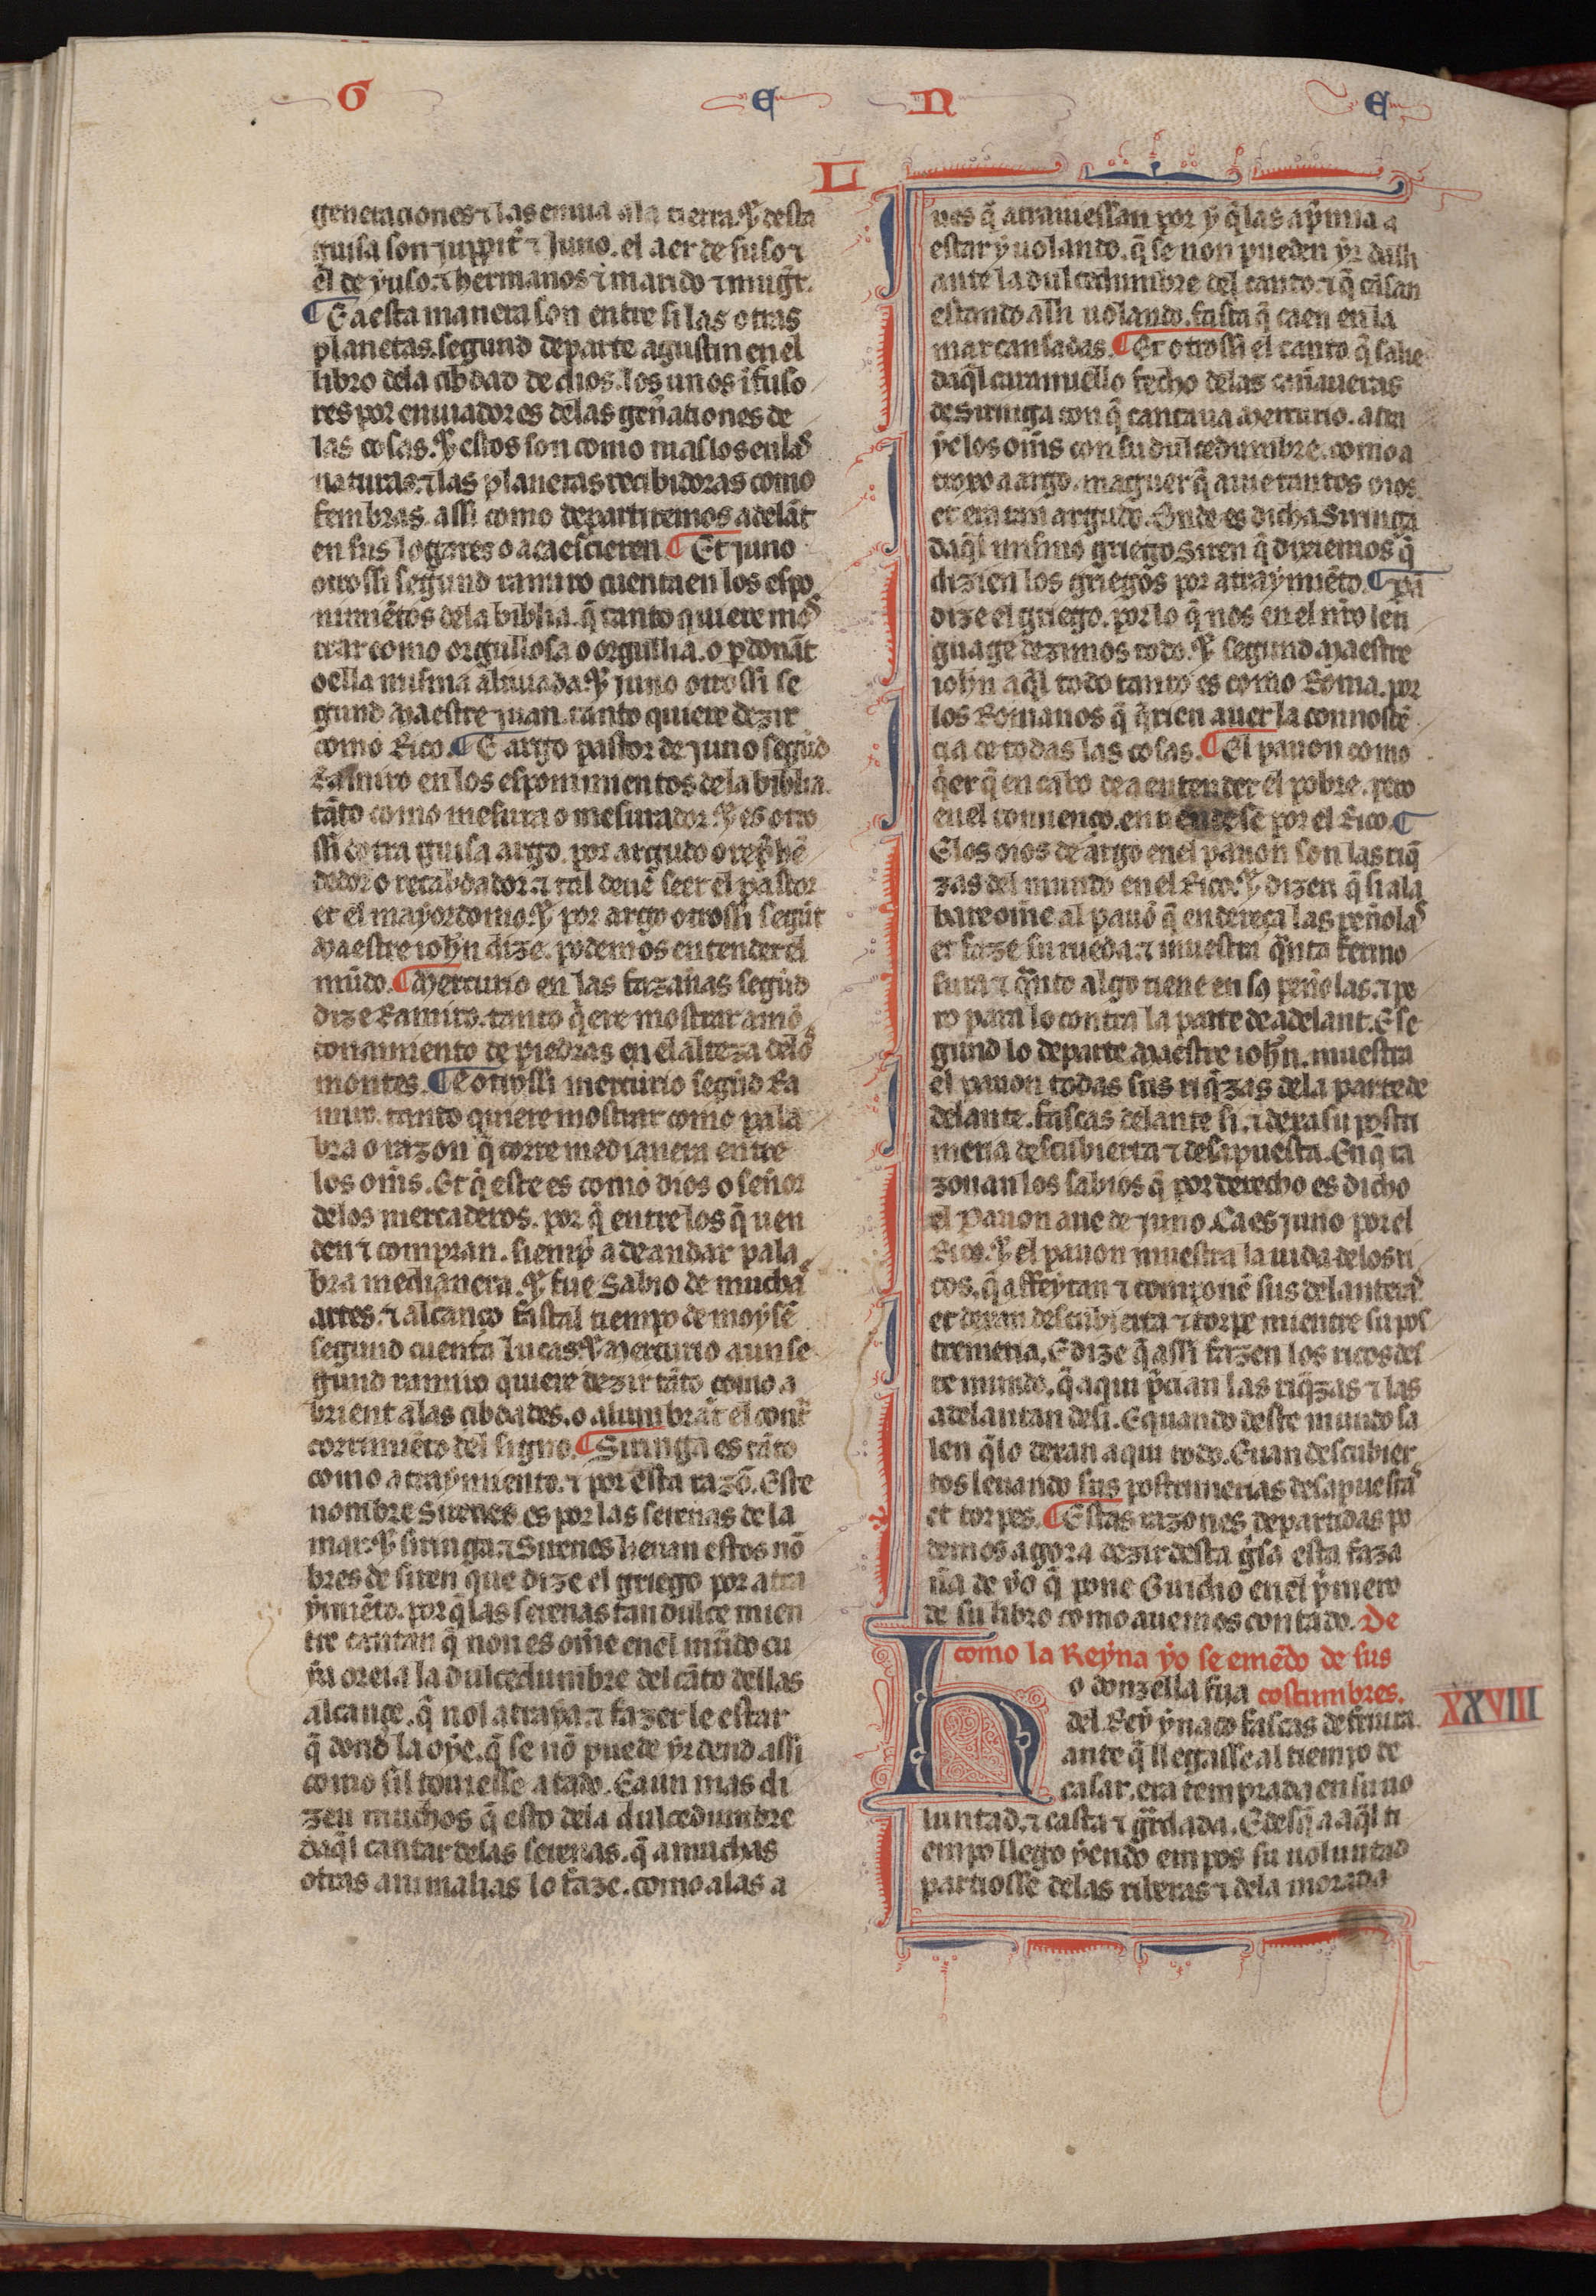 G E N E
L
generaciones ⁊ las enuia a la tierra. Y desta
guisa son juppit̃ ⁊ Juno. el aer de suso ⁊
el de yuso. ⁊ hermanos ⁊ marido ⁊ mugr̃.
¶ E a esta manera son entre si las otras
planetas. segund departe agustin en el
libro dela cibdad de dios. los unos ifuso
res por enuiadores delas geñationes de
las cosas. Y estos son como maslos en las
naturas. ⁊ las planetas recibidoras como
fembras. assi como departiremos adelãt
en sus logares o acaescieren. ¶ Et juno
otrossi segund ramiro cuenta en los espo
nimiẽtos dela biblia. q̃ tanto quiere mos
trar como orgullosa o orgullia. o ꝑdonãt
o ella misma aliuiada. Y juno otrossi se
gund Maestre juan. tanto quiere dezir
como Rico. ¶ E argo pastor de juno segũd
Ramiro en los esponimientos dela biblia.
tãto como mesura o mesurador. Y es otro
ssi dotra guisa argo. por argudo o rep̃hẽ
dedor o recabdador. ⁊ tal deuẽ seer el pastor
et el mayordomo. Y por argo otrossi segũt
Maestre ioh̃n dize. podemos entender el
mũdo. ¶ Mercurio en las fazañas segũd
dize Ramiro. tanto q̃ere mostrar amõ
tonamiento de piedras en el alteza delos
montes. ¶ E otrossi mercurio segũd Ra
miro. tanto quiere mostrar como pala
bra o razon q̃ corre medianera entre
los om̃s. Et q̃ este es como dios o señor
delos mercaderos. por q̃ entre los q̃ uen
den ⁊ compran. siemp̃ a de andar pala
bra medianera. Y fue Sabio de muchas
artes. ⁊ alcanço fastal tiempo de moysẽ
segund cuenta lucas. Y Mercurio aun se
gund ramiro quiere dezir tãto como a
brient a las cibdades. o alumbrãt el cont̃
corrimiẽto del signo. ¶ Siringa es tãto
como atraymiento. ⁊ por esta razõ. Este
nombre Sirenes es por las serenas de la
mar. Y siringa. ⁊ Sirenes lieuan estos nõ
bres de siren que dize el griego por atra
ymiẽto. por q̃ las serenas tan dulce mien
tre cantan q̃ non es om̃e en el mũdo cu
ya oreia la dulcedumbre del cãto dellas
alcance. q̃ nol atraya. ⁊ fazer le estar
q̃ dond la oye. q̃ se nõ puede yr dend assi
como sil touiesse atado. E aun mas di
zen muchos q̃ esto dela dulcedumbre
daq̃l cantar delas serenas. q̃ a muchas
otras animalias lo faze. como a las a
ues q̃ atrauiessan por y q̃ las ap̃mia a
estar y uolando. q̃ se non pueden yr dalli
ante la dulcedumbre del canto. ⁊ q̃ cãsan
estando alli uolando. fasta q̃ caen en la
mar cansadas. ¶ Et otrossi el canto q̃ salie
daq̃l caramiello fecho delas cañaueras
de Siringa con q̃ cantaua Mercurio. atra
ye los om̃s con su dulcedumbre. como a
troxo a argo. maguer q̃ auie tantos oios
et era tan argudo. Onde es dicha Siringa
daq̃l mismo griego Siren q̃ dixiemos q̃
dizien los griegos por atraymiẽto. ¶ Pã
dize el griego. por lo q̃ nos en el nr̃o len
guage dezimos todo. Y segund Maestre
ioh̃n aq̃l todo tanto es como Roma. por
los Romanos q̃ q̃rien auer la connoscẽ
cia de todas las cosas. ¶ El pauon como
q̃er q̃ en cabo dea entender el pobre. pero
en el comienço. entiendese por el Rico. ¶
E los oios de argo en el pauon son las riq̃
zas del mundo en el Rico. Y dizen q̃ si ala
bare om̃e al pauõ q̃ endereça las peñolas
et faze su rueda. ⁊ muestra q̃nta fermo
sura ⁊ q̃nto algo tiene en ss peñolas. ⁊ pe
ro para lo contra la parte de adelant. E se
gund lo departe Maestre ioh̃n. muestra
el pauon todas sus riq̃zas dela parte de
delante. fascas delante si. ⁊ dexa su postri
meria descubierta ⁊ desapuesta. En q̃ ra
zonan los sabios q̃ por derecho es dicho
el Pauon aue de juno. Ca es juno por el
Rico. Y el pauon muestra la uida delos ri
cos. q̃ affeytan ⁊ componẽ sus delanteras
et dexan descubierta ⁊ torpe mientre su pos
tremeria. E dize q̃ assi fazen los ricos des
te mundo. q̃ aqui p̃cian las riq̃zas ⁊ las
adelantan desi. E quando deste mundo sa
len q̃lo dexan aqui todo. E uan descubier
tos leuando sus postrimerias desapuestas
et torpes. ¶ Estas razones departidas po
demos agora dezir desta g̃sa esta faza
ña de yo q̃ pone Ouidio en el p̃mero
de su libro como auemos contado. De
como la Reyna yo se emẽdo de sus
costumbres.
XXVIII
Yo donzella fija
del Rey ynaco fascas de friura.
ante q̃ llegasse al tiempo de
casar. era temprada en su uo
luntad. ⁊ casta ⁊ gũdada. E desq̃ a aq̃l ti
empo llego yendo empos su uoluntad
partiosse delas riberas ⁊ dela morada